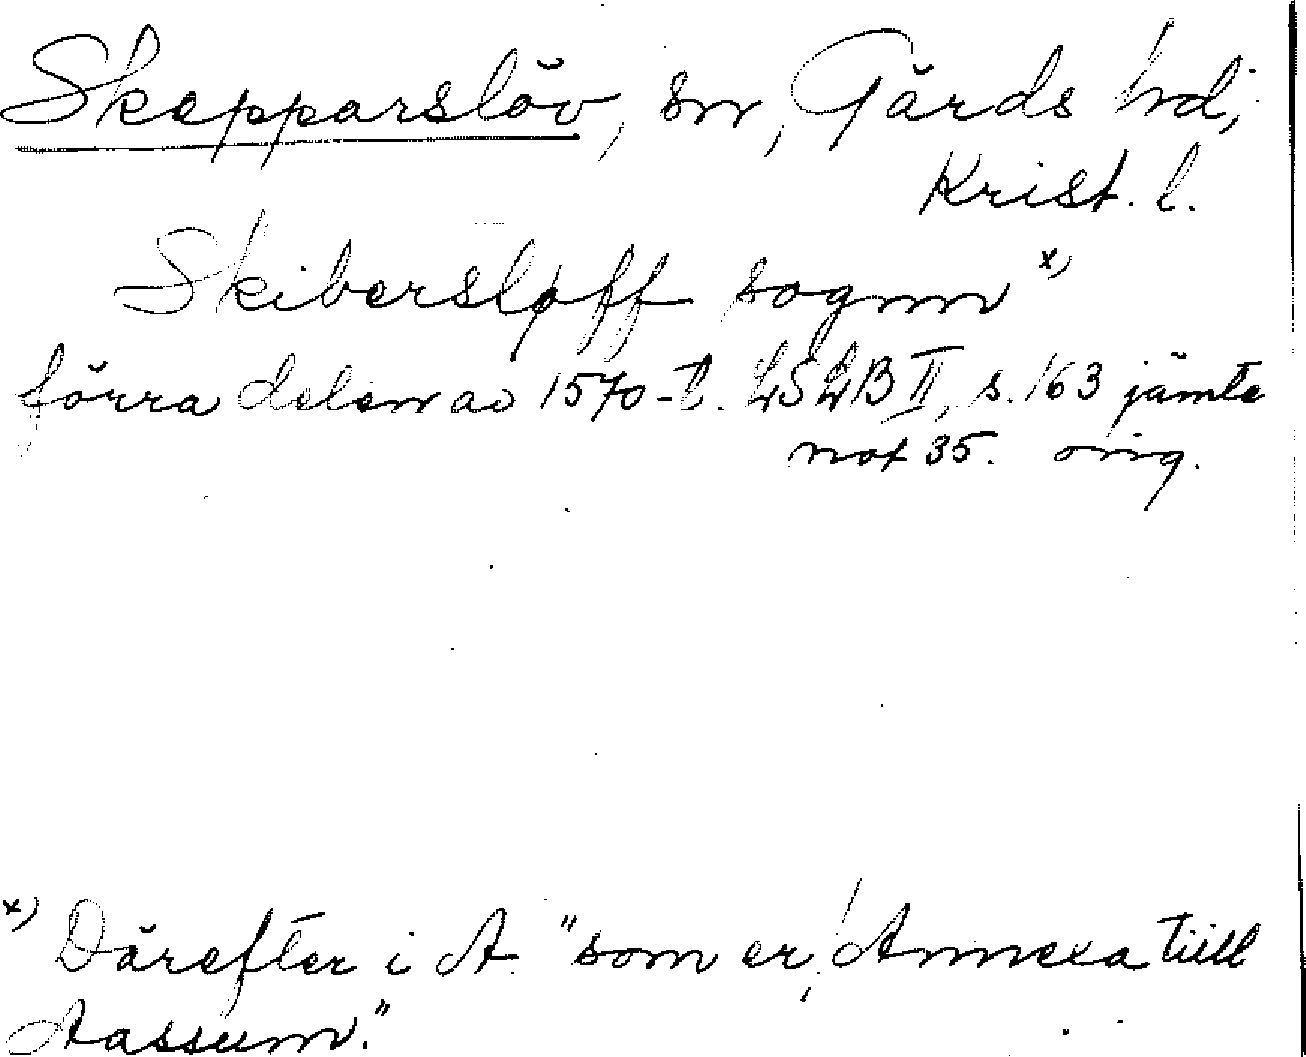 Skepparslöv, sn, Gärds hd,
Krist. l.
Skibersløff sognn x)
förra delen av 1570-t. LSLB II, s. 163 jämte
not 35. orig.
x) Därefter i A "som er Annexa tiill
Aassum."